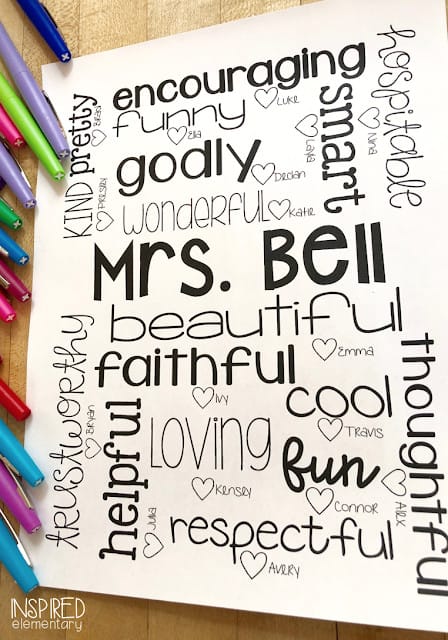 encouraging
Luke
funny
Ella
KIND
Presley
pretty
Brian
godly
Declan
smart
Layla
hospitable
Nina
wonderful
Katie
Mrs. Bell
beautiful
Emma
faithful
Ivy
trustworthy
Bryan
cool
Travis
thoughtful
Alex
helpful
Julia
Loving
Kensey
fun
Connor
respectful
Avery
INSPIRED
elementary